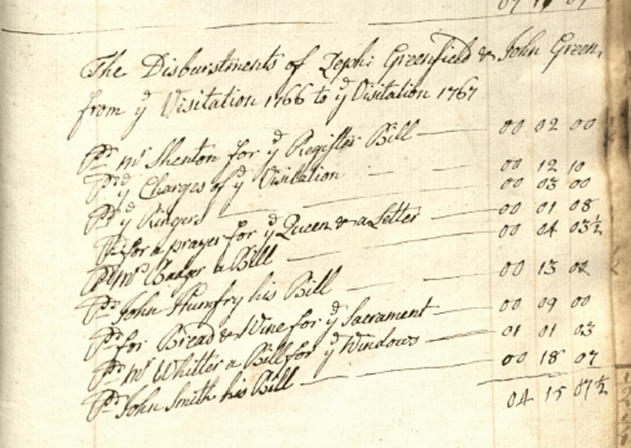 The Disburstments of Zeph: Greenfield & John Green,
from yᵉ Visitation 1766 to yᵉ Visitation 1767
Pᵈ Mʳ Shenton for yᵉ Register Bill — 00 02 00
Pᵈ yᵉ Charges of yᵉ Visitation — 00 12 10
Pᵈ yᵉ Ringers — 00 03 00
Pᵈ for a prayer for yᵉ Queen & a Letter 00 01 08
Pᵈ Mʳ Badger a Bill — 00 04 03½
Pᵈ John Humfry his Bill — 00 13 00
Pᵈ for Bread & Wine for yᵉ Sacrament — 00 09 00
Pᵈ Mʳ Whitter a Bill for yᵉ Windows — 01 01 03
Pᵈ John Smith his Bill — 00 18 07
04 15 07½